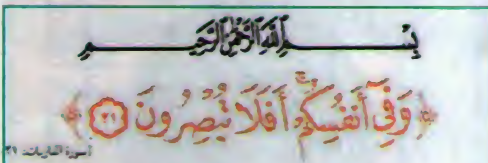 بسم الله الرحمن الرحيم
﴿وَفِي أَنفُسِكُمْ أَفَلَا تُبْصِرُونَ ٢١﴾
[سورة الذاريات: ٢١